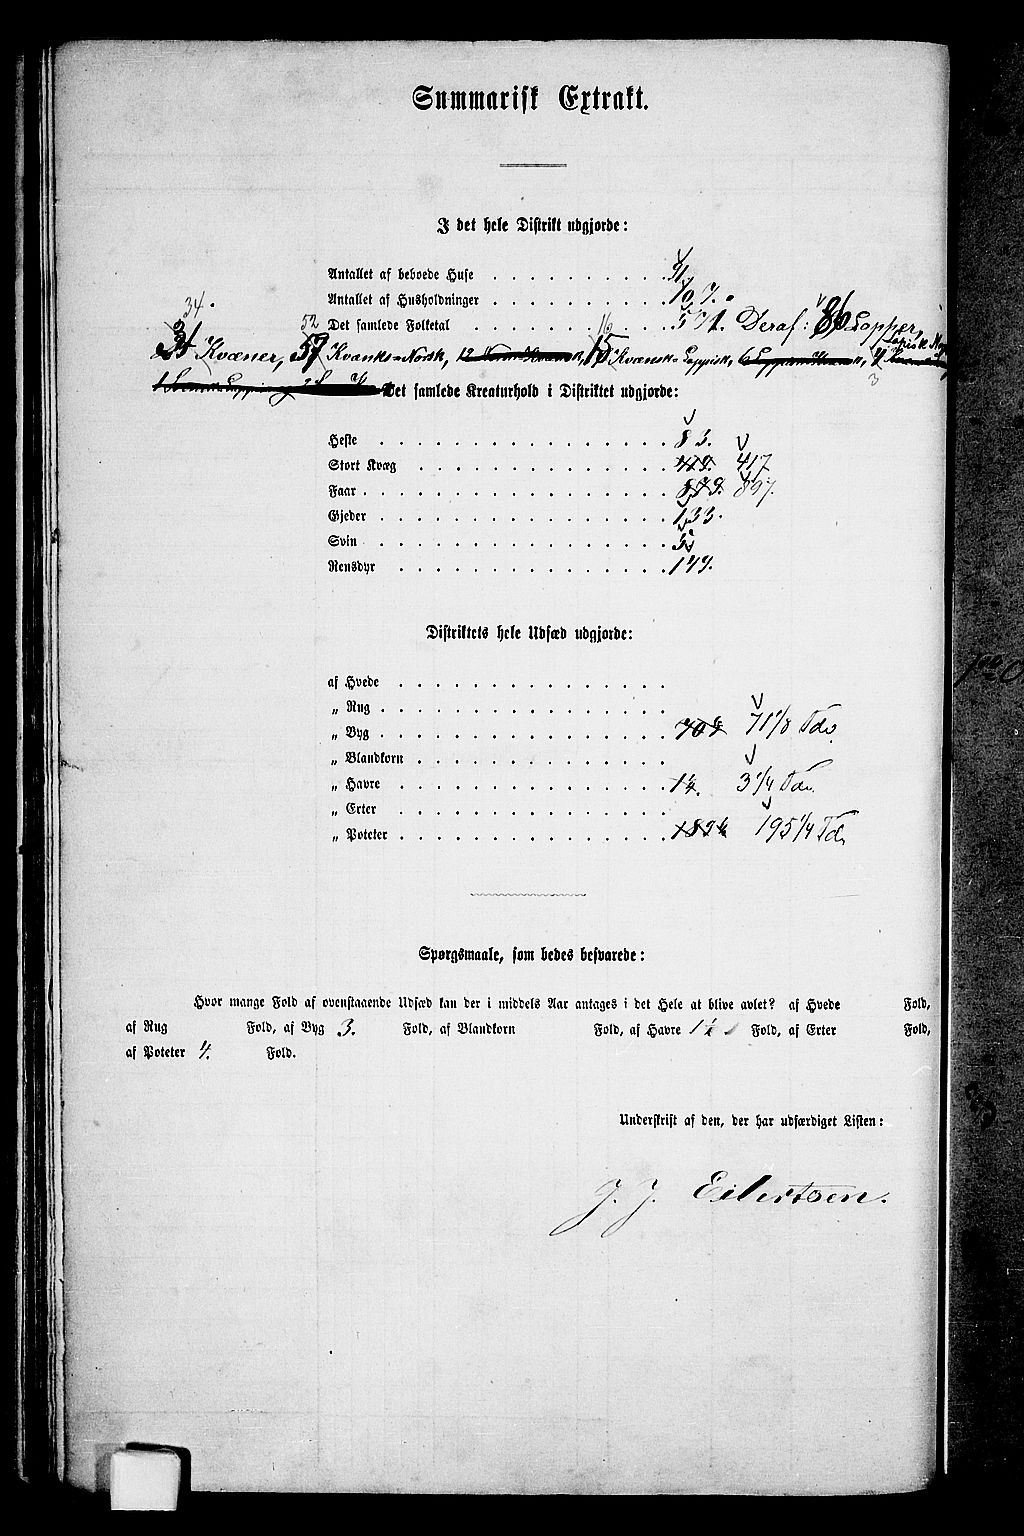 Summarisk Extrakt.
I det hele Distrikt udgjorde:
Antallet af beboede Huse . . . . . . . . . . 91.
Antallet af Husholdninger . . . . . . . . . . 107.
Det samlede Folketal . . . . . . . . . . 571. Deraf: 86 Lapper,
34.
52
16
Kvæner, 57 Kvænsk-Norsk, 15 Kvænsk-Lappisk,
3
Det samlede Kreaturhold i Distriktet udgjorde:
Heste . . . . . . . . . . 83.
Stort Kvæg . . . . . . . . . . 419. 417
Faar . . . . . . . . . . 879. 897.
Gjeder . . . . . . . . . . 133.
Svin . . . . . . . . . .
Rensdyr . . . . . . . . . . 149.
Distriktets hele Udsæd udgjorde:
af Hvede . . . . . . . . . .
„ Rug . . . . . . . . . .
„ Byg . . . . . . . . . . 71 1/8 Tdr.
„ Blandkorn . . . . . . . . . .
„ Havre . . . . . . . . . . 3 1/4 Tdr.
„ Erter . . . . . . . . . .
„ Poteter . . . . . . . . . . 195 1/4 Td.
Spørgsmaale, som bedes besvarede:
Hvor mange Fold af ovenstaaende Udsæd kan der i middels Aar antages i det Hele at blive avlet? af Hvede Fold,
af Rug Fold, af Byg 3. Fold, af Blandkorn Fold, af Havre 1 1/2 Fold, af Erter Fold,
af Poteter 4. Fold.
Underskrift af den, der har udfærdiget Listen:
J. J. Eilertsen.